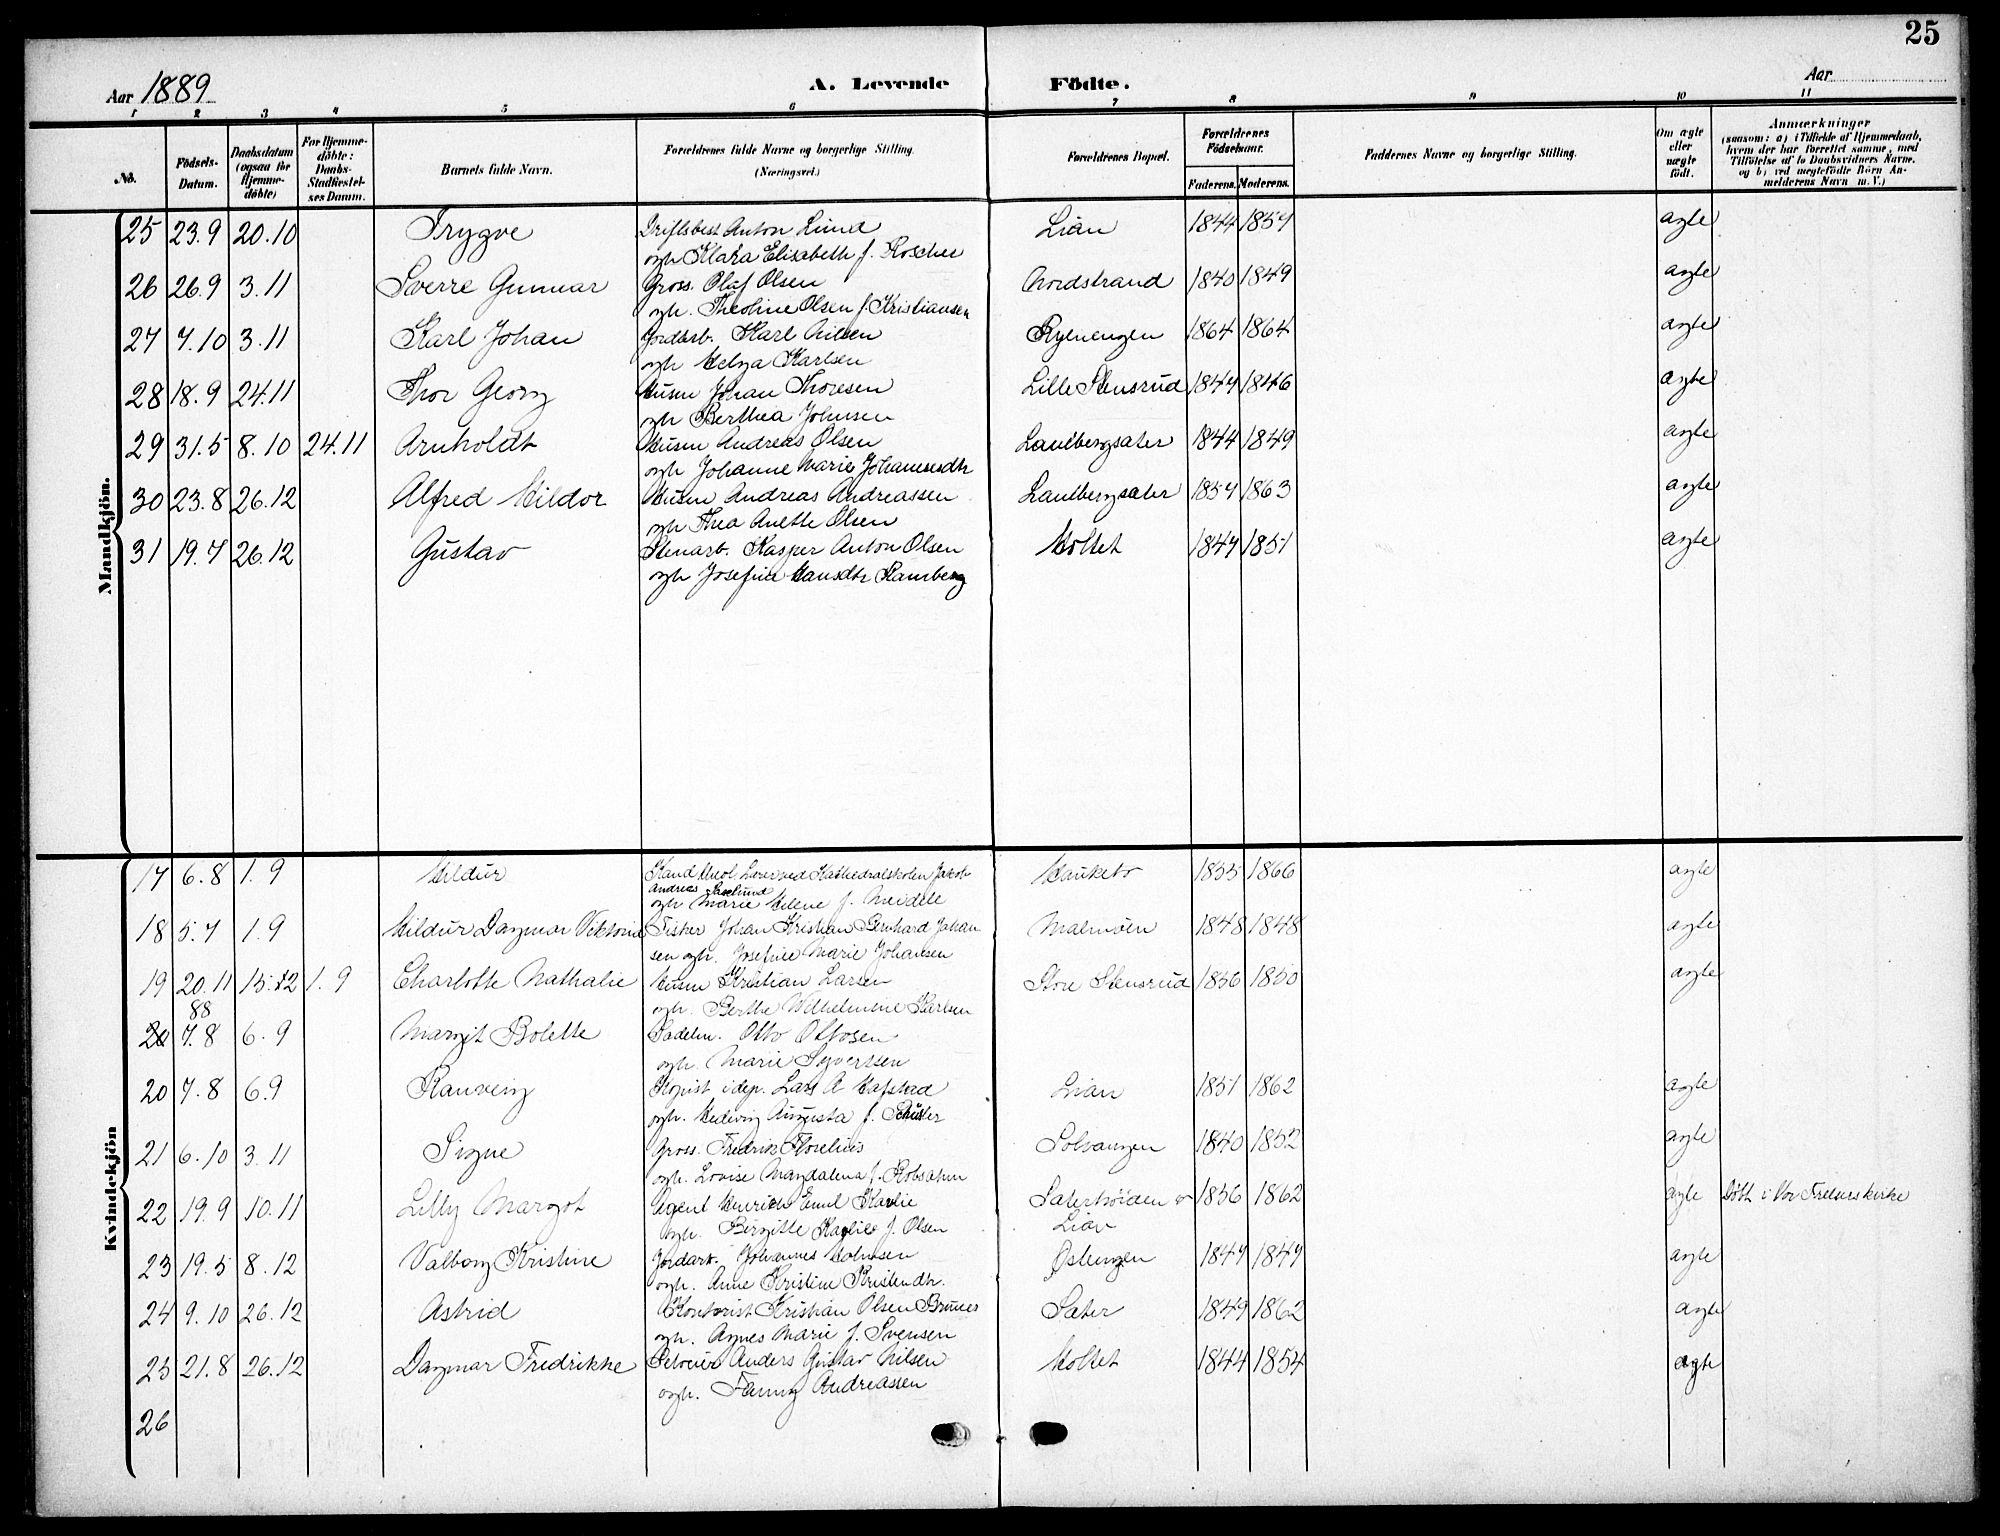 25
Aar 1889
A. Levende Födte.
Aar
1 2 3 4 5 6 7 8 9 10 11
No.
Födsels-Datum.
Daabsdatum (ogsaa for Hjemme-döbte)
For Hjemme-döbte: Daabs-Stadfæstel-ses Datum.
Barnets fulde Navn.
Forældrenes fulde Navne og borgerlige Stilling. (Næringsvei.)
Forældrenes Bopæl.
Forældrenes Födselsaar.
Faderens. Moderens.
Faddernes Navne og borgerlige Stilling.
Om ægte eller uægte födt.
Anmærkninger
(saasom: a) i Tilfælde af Hjemmedaab, hvem der har forrettet samme, med Tilföielse af to Daabsvidners Navne, og b) ved uægtefödte Börn An-melderens Navn m. V.)
Mandkjön.
25 23.9 20.10 Trygve Driftsbest Anton Lund Lian 1844 1857 ægte
ogh Klara Elisabeth f. Roscher
26 26.9 3.11 Sverre Gunnar Gross. Olaf Olsen Nordstrand 1840 1849 ægte
ogh. Theoline Olsen f. Kristiansen
27 7.10 3.11 Karl Johan Jordarb. Karl Nilsen Ryenengen 1864 1864 ægte
ogh Helga Karlsen
28 18.9 24.11 Thor Georg Husm Johan Thoresen Lille Stensrud 1847 1846 ægte
ogh Berthea Johnsen
29 31.5 8.10 24.11 Arnholdt Husm Andreas Olsen 1844 1849 ægte
ogh Johanne Marie Johannesdtr
30 23.8 26.12 Alfred Hildor Husm Andreas Andreassen 1857 1863 ægte
ogh Thea Anette Olsen
31 19.7 26.12 Gustav Stenarb. Kasper Anton Olsen Holtet 1847 1851 ægte
ogh Josefine Hansdtr Ramberg
Kvindekjön
17 6.8 1.9 Hildur Kand theol Lærer ved Kathedralskolen Jakob Hauketo 1855 1866 ægte
Andreas
ogh Marie Helene f. Meidell
18 5.7 1.9 Hildur Dagmar Viktoria Fisker Johan Kristian Bernhard Johan Malmöen 1848 1848 ægte
sen ogh. Josefine Marie Johansen
19 20.11 15.12 1.9 Charlotte Nathalie Husm Kristian Larsen Store Stensrud 1856 1850 ægte
88 ogh. Berthe Wilhelmine Karlsen
20 7.8 6.9 Margit Bolette Sadelm. Otto Ottosen
ogh. Marie Syverssen
20 7.8 6.9 Ranveig Kopist i dep. Lars A Hafstad Lian 1851 1862 ægte
ogh. Hedevig Augusta f. Schüsler
21 6.10 3.11 Signe Gross. Fredrik Floelius Solvangen 1840 1852 ægte
ogh. Lovise Magdalena f. Robsahm
22 19.9 10.11 Lilly Margot Agent Henrich Emil Kavlie Sæterhöiden v 1856 1862 ægte Döbt i Vor Frelsers kirke
ogh. Birgitte Kavlie f. Olsen Lian
23 19.5 8.12 Valborg Kristine Jordarb. Johannes Halvorsen Østengen 1847 1849 ægte
ogh. Anne Kristine Kristendtr.
24 9.10 26.12 Astrid Kontorist Kristian Olsen Brunes Sæter 1849 1862 ægte
ogh. Agnes Marie f. Svensen
25 21.8 26.12 Dagmar Fredrikke Anders Gustav Nilsen Holtet 1844 1854 ægte
ogh. Fanny Andreassen
26